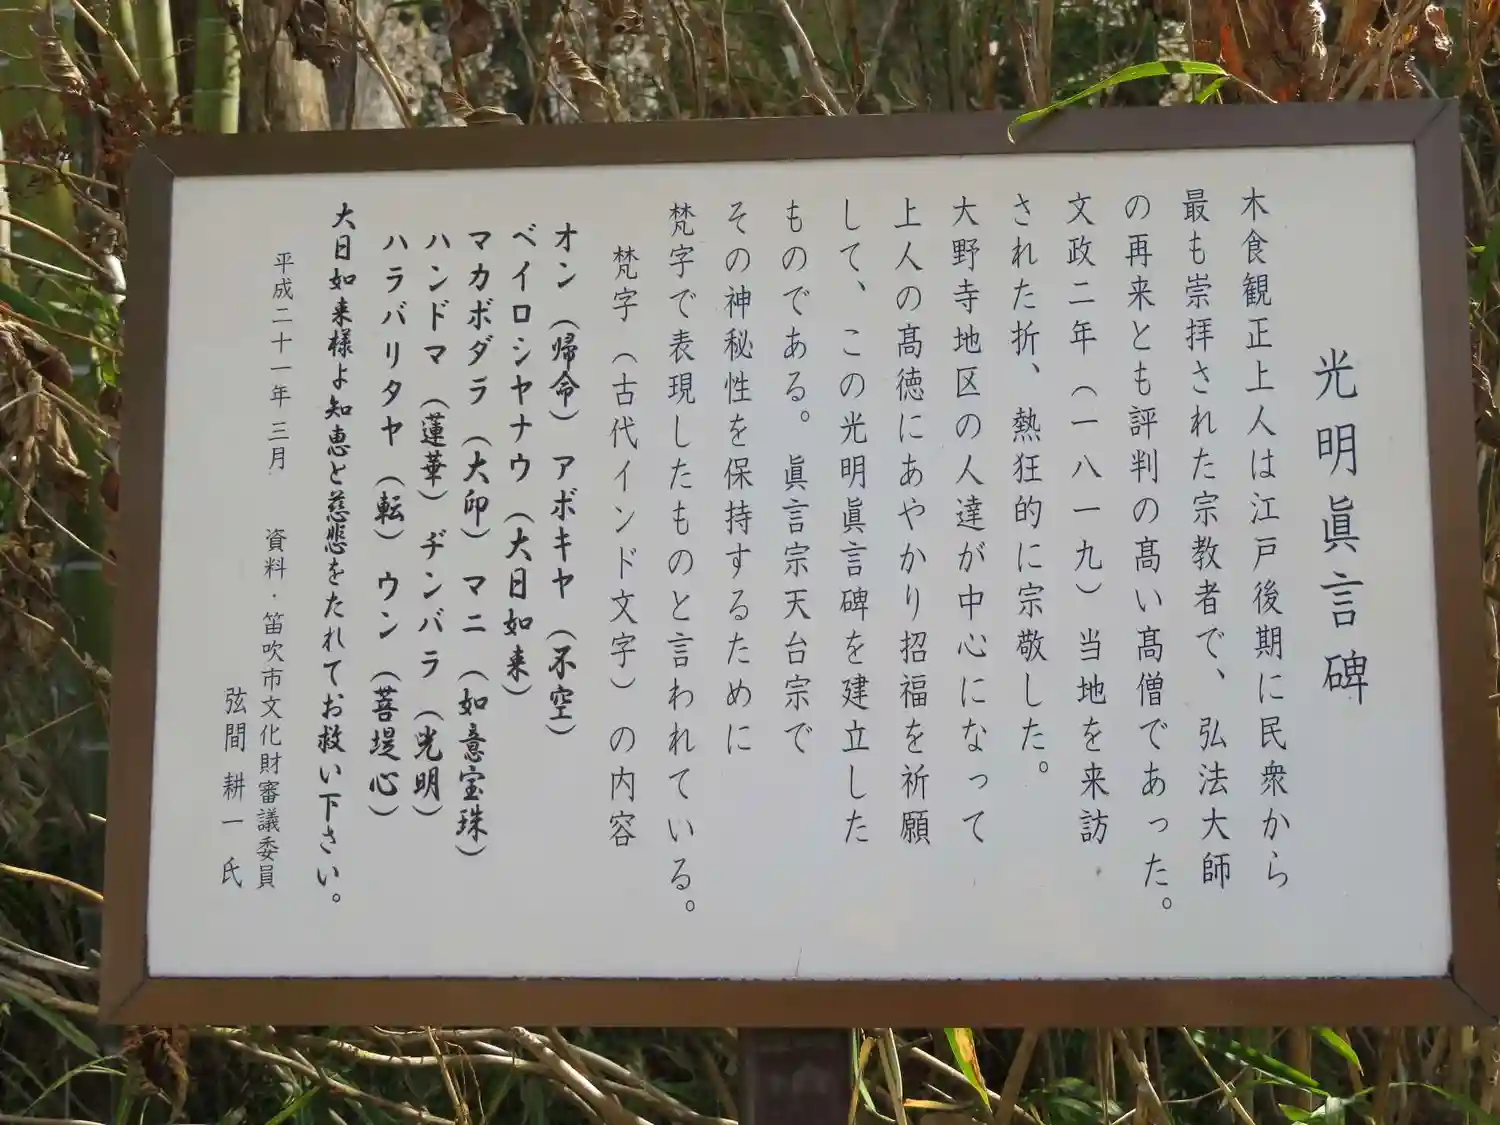 光明眞言碑
木食観正上人は江戸後期に民衆から
最も崇拝された宗教者で、弘法大師
の再来とも評判の髙い髙僧であった。
文政二年（一八一九）当地を来訪
された折、熱狂的に宗敬した。
大野寺地区の人達が中心になって
上人の髙徳にあやかり招福を祈願
して、この光明眞言碑を建立した
ものである。眞言宗天台宗で
その神秘性を保持するために
梵字で表現したものと言われている。
梵字（古代インド文字）の内容
オン（帰命）アボキヤ（不空）
ベイロシヤナウ（大日如来）
マカボダラ（大印）マニ（如意宝珠）
ハンドマ（蓮華）ヂンバラ（光明）
ハラバリタヤ（転）ウン（菩堤心）
大日如来様よ知恵と慈悲をたれてお救い下さい。
平成二十一年三月　資料・笛吹市文化財審議委員
弦間耕一氏